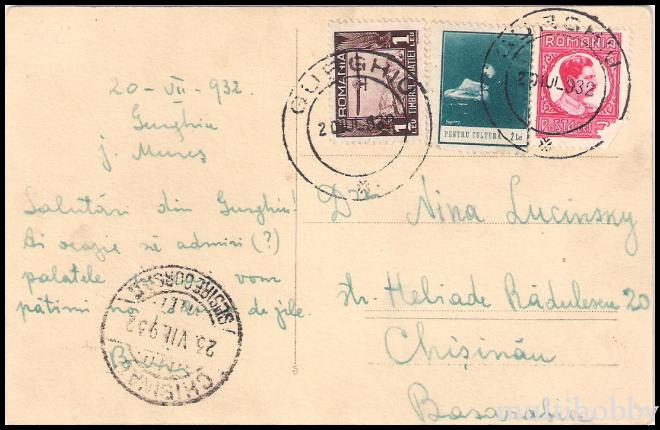 20-VII-932.
Gurghiu
j. Mureș
Salutări din Gurghiu!
Ai ocazie să admiri (?)
palatele vom
pătimi noi de zile.
GURGHIU
20 IUL 932
ROMANIA
TIMBRUL AVIATIEI
1 LEU
1 LEU
PENTRU CULTURA 2 Lei
GURGHIU
20 IUL 932
ROMANIA
POSTA
Dre Nina Lucinsky
str. Heliade Rădulescu 20
Chișinău
Basarabia
CHISINAU
23 VII. 932
multihobby